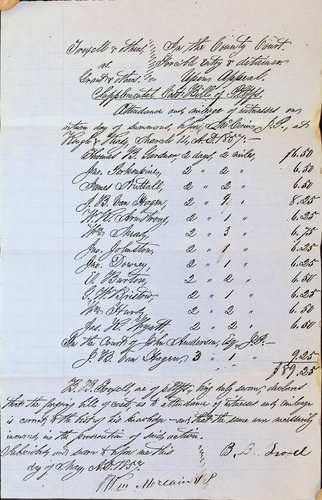 & others In the County Court.
vs. Forcible entry & detainer
Grant & others Upon Appeal.
Supplemental Cost Bill of Plffs.
Attendance and mileage of witnesses on
return day of summons, before J.P., at
March 14, A.D. 1857:—
Thomas B. Gordon 2 days, 2 miles, $6.50
Jas. 2 " 2 " 6.50
James Nuttall, 2 " 2 " 6.50
J. B. Van Hagen, 2 " 9 " 8.25
W. H. Armstrong, 2 " 1 " 6.25
Wm. 2 " 3 " 6.75
Jno. Johnston, 2 " 1 " 6.25
Jno. Downey, 2 " 1 " 6.25
Burton, 2 " 2 " 6.50
C. W. 2 " 1 " 6.25
Wm. Hurd, 2 " 2 " 6.50
Jas. H. Wyatt 2 " 2 " 6.50
In the Court of John Anderson, Esq., J.P.—
J. B. Van Hagen, 3 " 1 " 9.25
$89.25
one of plffs, being duly sworn, declares
that the foregoing bill of costs as to attendance of witnesses and mileage
is correct, to the best of his knowledge and that the same were necessarily
incurred in the prosecution of said action.
Subscribed and sworn to before me this
day of May A.D. 1857